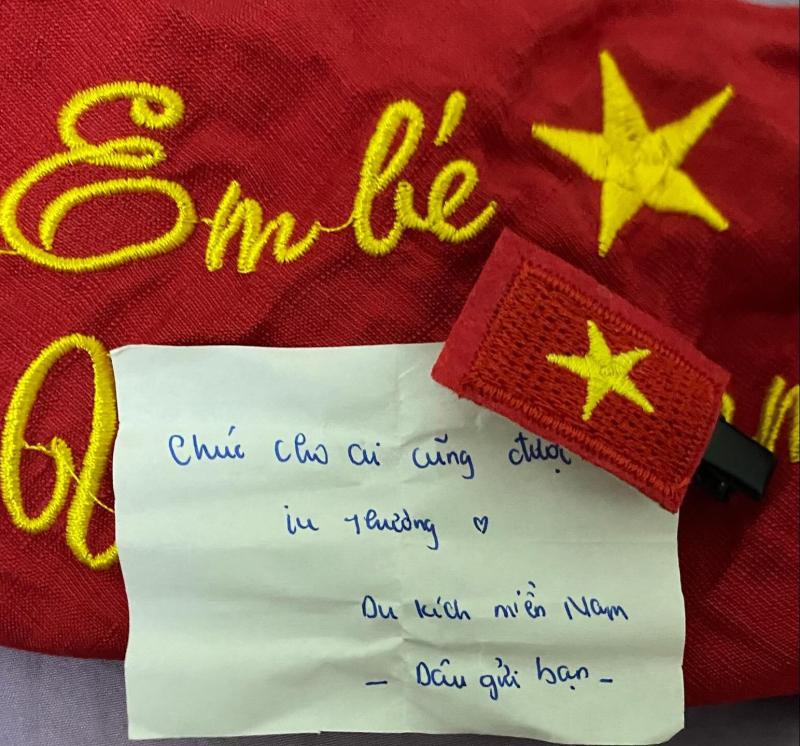 Em bé
Q
Chúc cho ai cũng được
iu thương ♡
Du kích miền Nam
- Dâu gửi bạn -